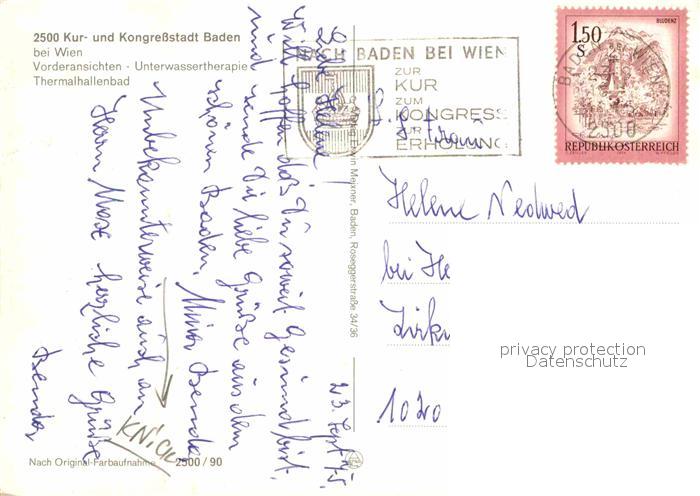 2500 Kur- und Kongreßstadt Baden
bei Wien
Vorderansichten · Unterwassertherapie
Thermalhallenbad
NACH BADEN BEI WIEN
ZUR
KUR
ZUM
KONGRESS
ZUR
ERHOLUNG
BADEN BEI WIEN
2500
BLUDENZ
1.50
S
REPUBLIK ÖSTERREICH
23. Sept. 75
Liebe Helene!
Wir hoffen daß Du soweit gesund bist.
und sende Dir liebe Grüße aus dem
schönen Baden.
Unbekannterweise auch an
Herrn Maxe herzliche Grüße
KNICK
Erwin Mejxner, Baden, Roseggerstraße 34/36
Helene Nedwed
bei He
Zirk
1020
privacy protection
Datenschutz
Nach Original-Farbaufnahme 2500/90